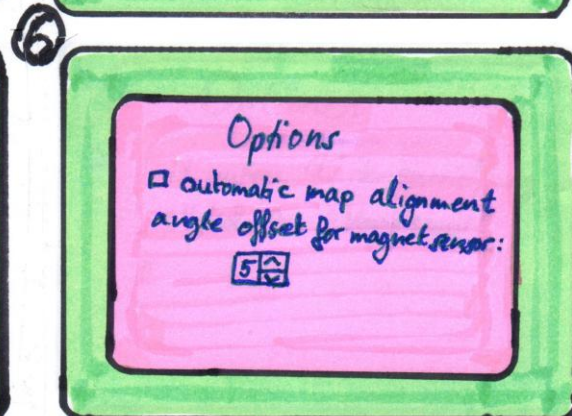 6
Options
automatic map alignment
angle offset for magnet sensor:
5